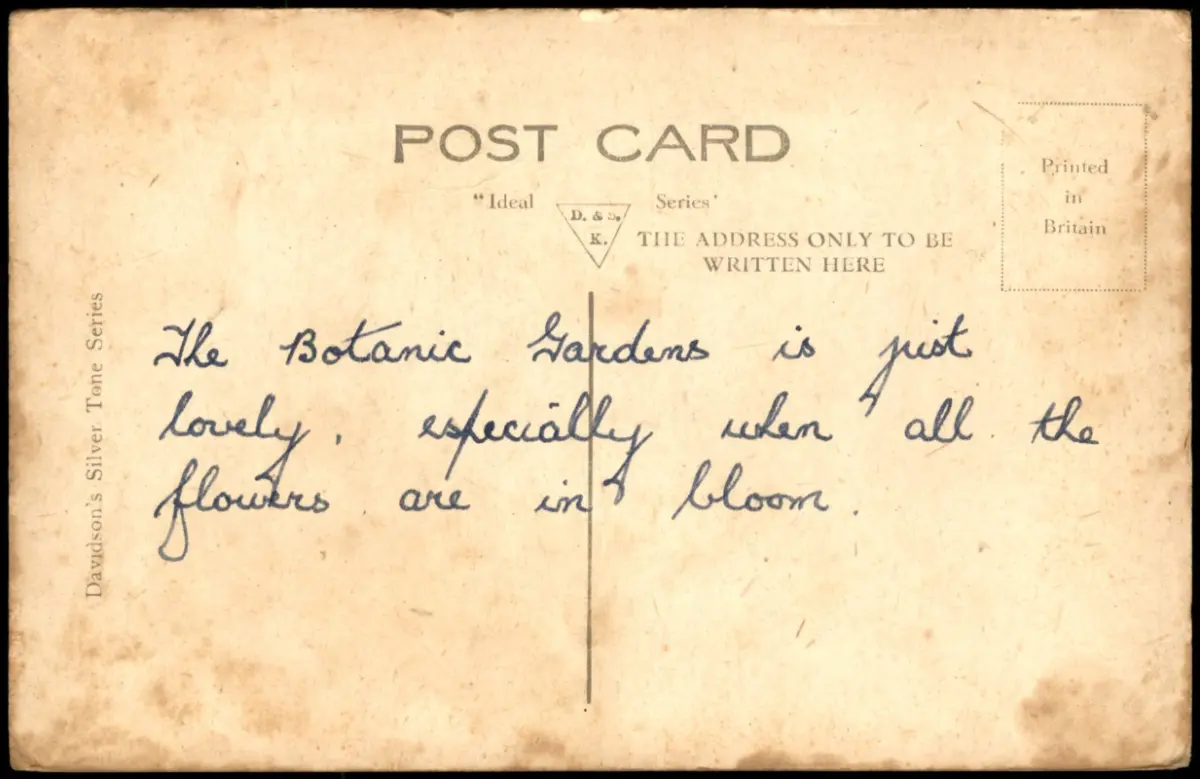 POST CARD
"Ideal Series'
D. & S.
K.
THE ADDRESS ONLY TO BE
WRITTEN HERE
Printed
in
Britain
Davidson's Silver Tone Series
The Botanic Gardens is just
lovely, especially when all the
flowers are in bloom.